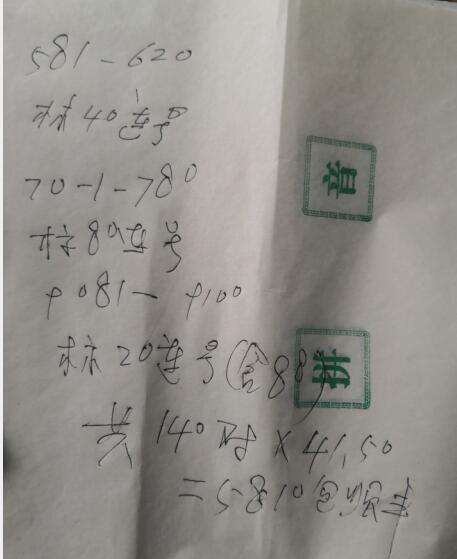 581-620
标40连号
701-780
标80连号
9081-9100
标20连号(含88)
共140对×41.50
=5810包顺丰
音
拼